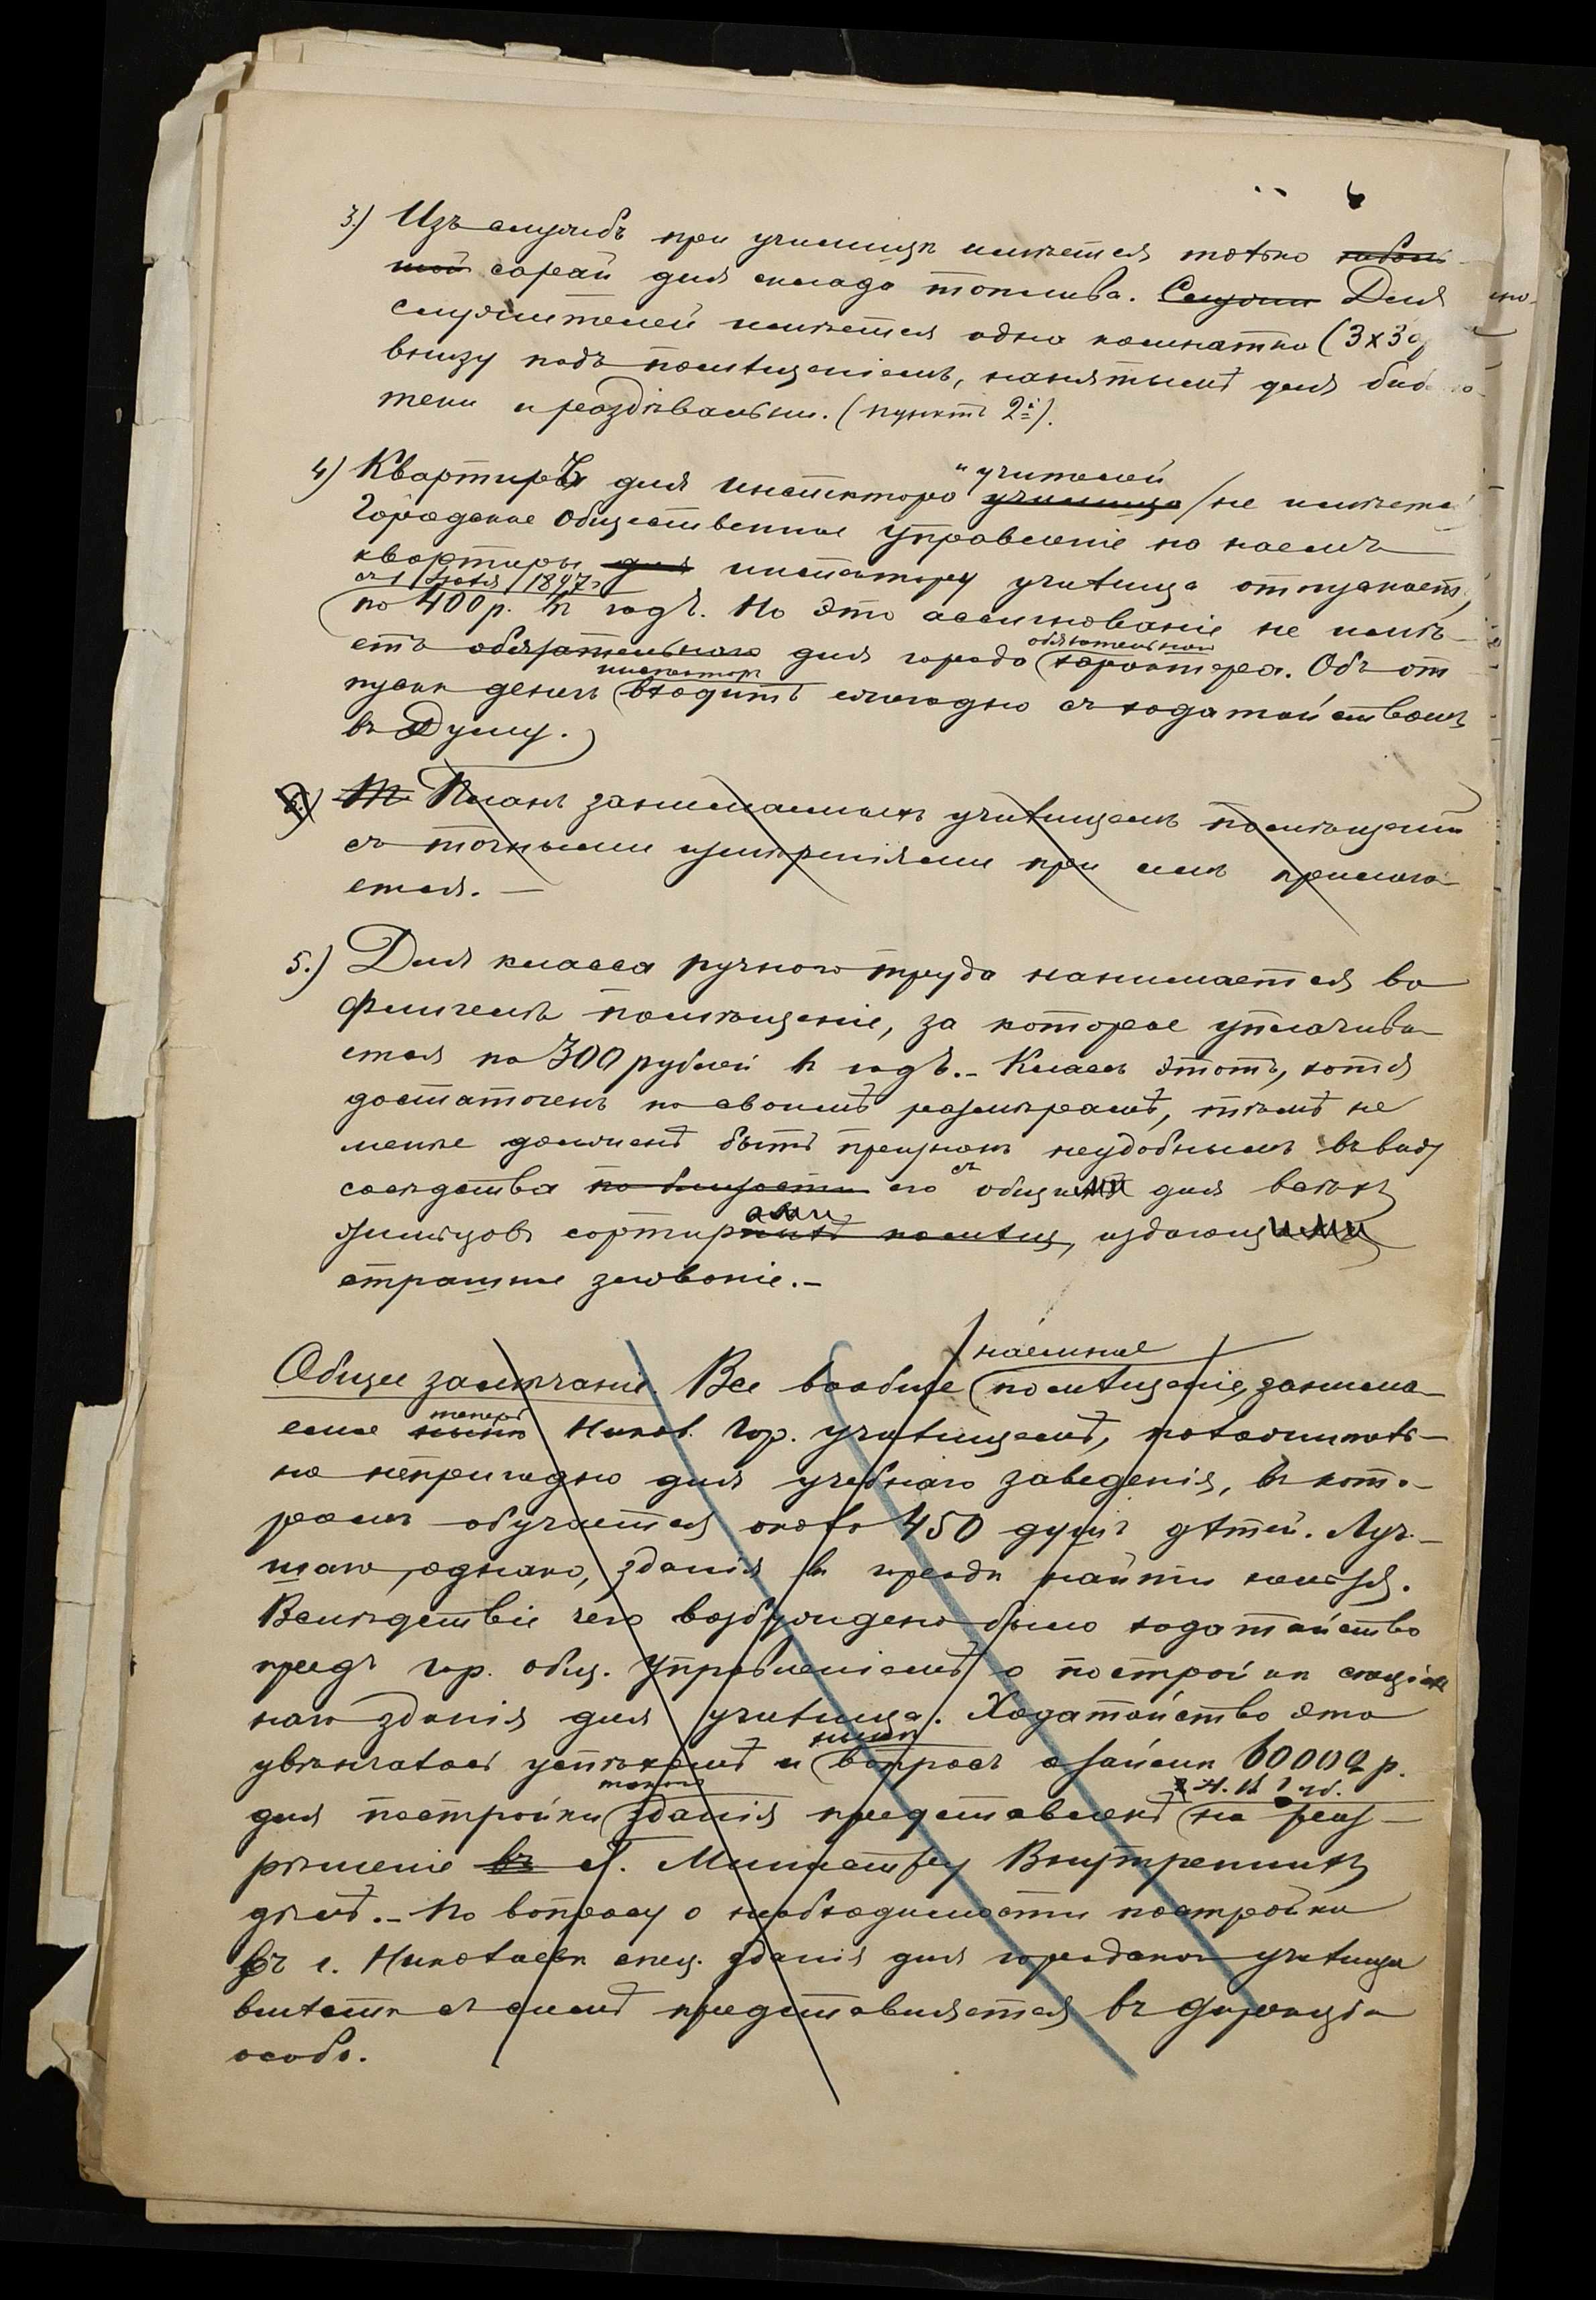 3.) Изъ службъ при училищѣ имѣется только неболь-
шой сарай для склада топлива. Служи Для
служителей имѣется одна комнатка (3х3
внизу подъ помѣщеніемъ, нанятымъ для биб
теки и раздѣвальни. (пунктъ 2й).
и учителей
4) Квартиръ для инспектора училища не имѣется
Городское Общественное Управленіе на наемъ
квартиры для инспектору училища отпускаетъ
съ 1 Іюля 1897 г
по 400 р. въ годъ. Но это ассигнованіе не имѣ-
обязательнаго
етъ обязательнаго для города характера. Объ от
инспекторъ
пускѣ денегъ входитъ ежегодно съ ходатайствомъ
въ Думу.
Планъ занимаемыхъ училищемъ помѣщеній
съ точными измѣреніями при семъ прилага-
ется. —
5.) Для класса ручного труда нанимается во
флигелѣ помѣщеніе, за которое уплачива-
ется по 300 рублей въ годъ. – Классъ этотъ, хотя
достаточенъ по своимъ размѣрамъ, тѣмъ не
менѣе долженъ быть признанъ неудобнымъ въ виду
сосѣдства по близости его съ общими для всѣхъ
ами
жильцовъ сортирныхъ помѣщ, издающими
страшное зловоніе. –
наемное
Общее замѣчаніе. Все вообще помѣщеніе, занима-
теперь
емое нынѣ Никол. Гор. училищемъ, положитель-
но непригодно для учебнаго заведенія, въ кото-
ромъ обучается около 450 душъ дѣтей. Луч-
шаго, однако, зданія въ городѣ найти нельзя.
Вслѣдствіе чего возбуждено было ходатайство
предъ гор. общ. Управленіемъ о постройкѣ спеціаль
наго зданія для училища. Ходатайство это
нынѣ
увѣнчалось успѣхомъ и вопросъ о займѣ 60000 р.
такого
для постройки зданія представленъ на раз-
рѣшеніе въ Г. Министру Внутреннихъ
дѣлъ. – По вопросу о необходимости постройки
въ г. Николаевѣ спец. зданія для городского училища
вмѣстѣ съ симъ представляется въ Дирекцію
особо.